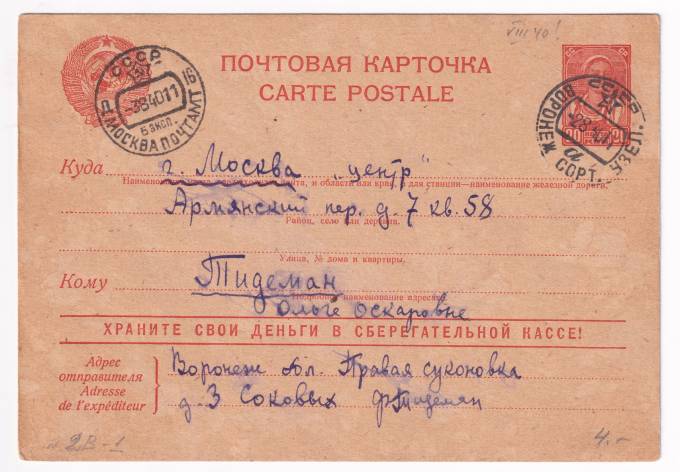 VIII 40!
ПОЧТОВАЯ КАРТОЧКА
CARTE POSTALE
СССР
-384011
Б ЭКСП.
МОСКВА ПОЧТАМТ
16
ВОРОНЕЖ
СОРТ. УЗЕЛ.
а
20 20
Куда г. Москва „центр"
Наименование и области или края, а для станции—наименование железной дороги.
Армянский пер. д. 7 кв. 58
Район, село или деревня.
Улица, № дома и квартиры.
Кому Тидеман
наименование адресата
Ольге Оскаровне
ХРАНИТЕ СВОИ ДЕНЬГИ В СБЕРЕГАТЕЛЬНОЙ КАССЕ!
Адрес отправителя
Adresse de l'expéditeur
Воронеж Правая суконовка
д. 3 Соковых Тидеман
2В-1
4.-